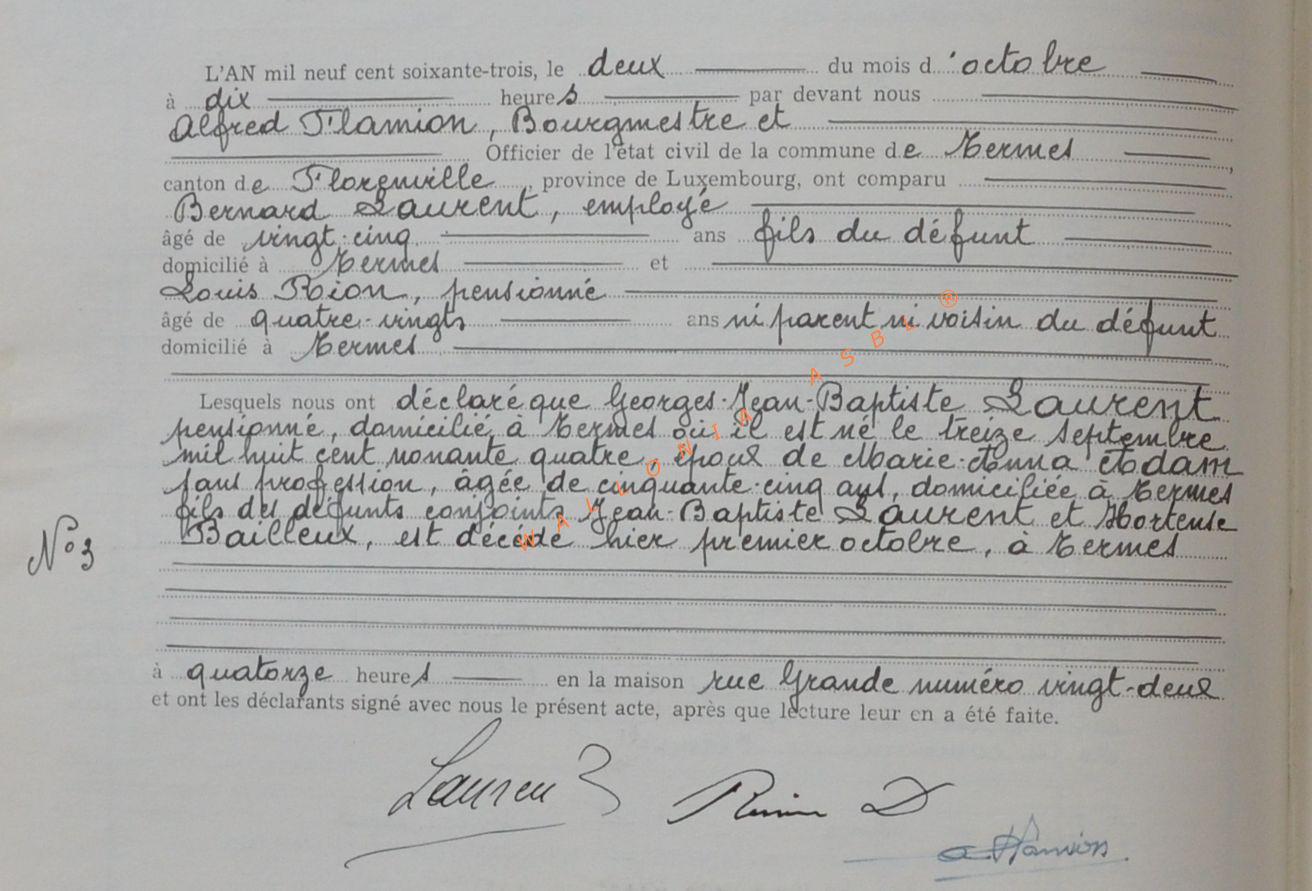 L'AN mil neuf cent soixante-trois, le deux du mois d'octobre
à dix heures par devant nous
Alfred Flamion, Bourgmestre et
Officier de l'état civil de la commune de Termes
canton de Florenville, province de Luxembourg, ont comparu
Bernard Laurent, employé
âgé de vingt-cinq ans fils du défunt
domicilié à Termes et
Louis Rion, pensionné
âgé de quatre-vingts ans ni parent ni voisin du défunt
domicilié à Termes
Lesquels nous ont déclaré que Georges-Jean-Baptiste Laurent
pensionné, domicilié à Termes où il est né le treize septembre
mil huit cent nonante quatre, époux de Marie-Anna Adam
sans profession, âgée de cinquante-cinq ans, domiciliée à Termes
fils des défunts conjoints Jean-Baptiste Laurent et Hortense
Bailleux, est décédé hier premier octobre, à Termes
N°3
à quatorze heures en la maison rue Grande numéro vingt-deux
et ont les déclarants signé avec nous le présent acte, après que lecture leur en a été faite.
Laurent
Rion
A. Flamion
WALLONIA ASBL ®